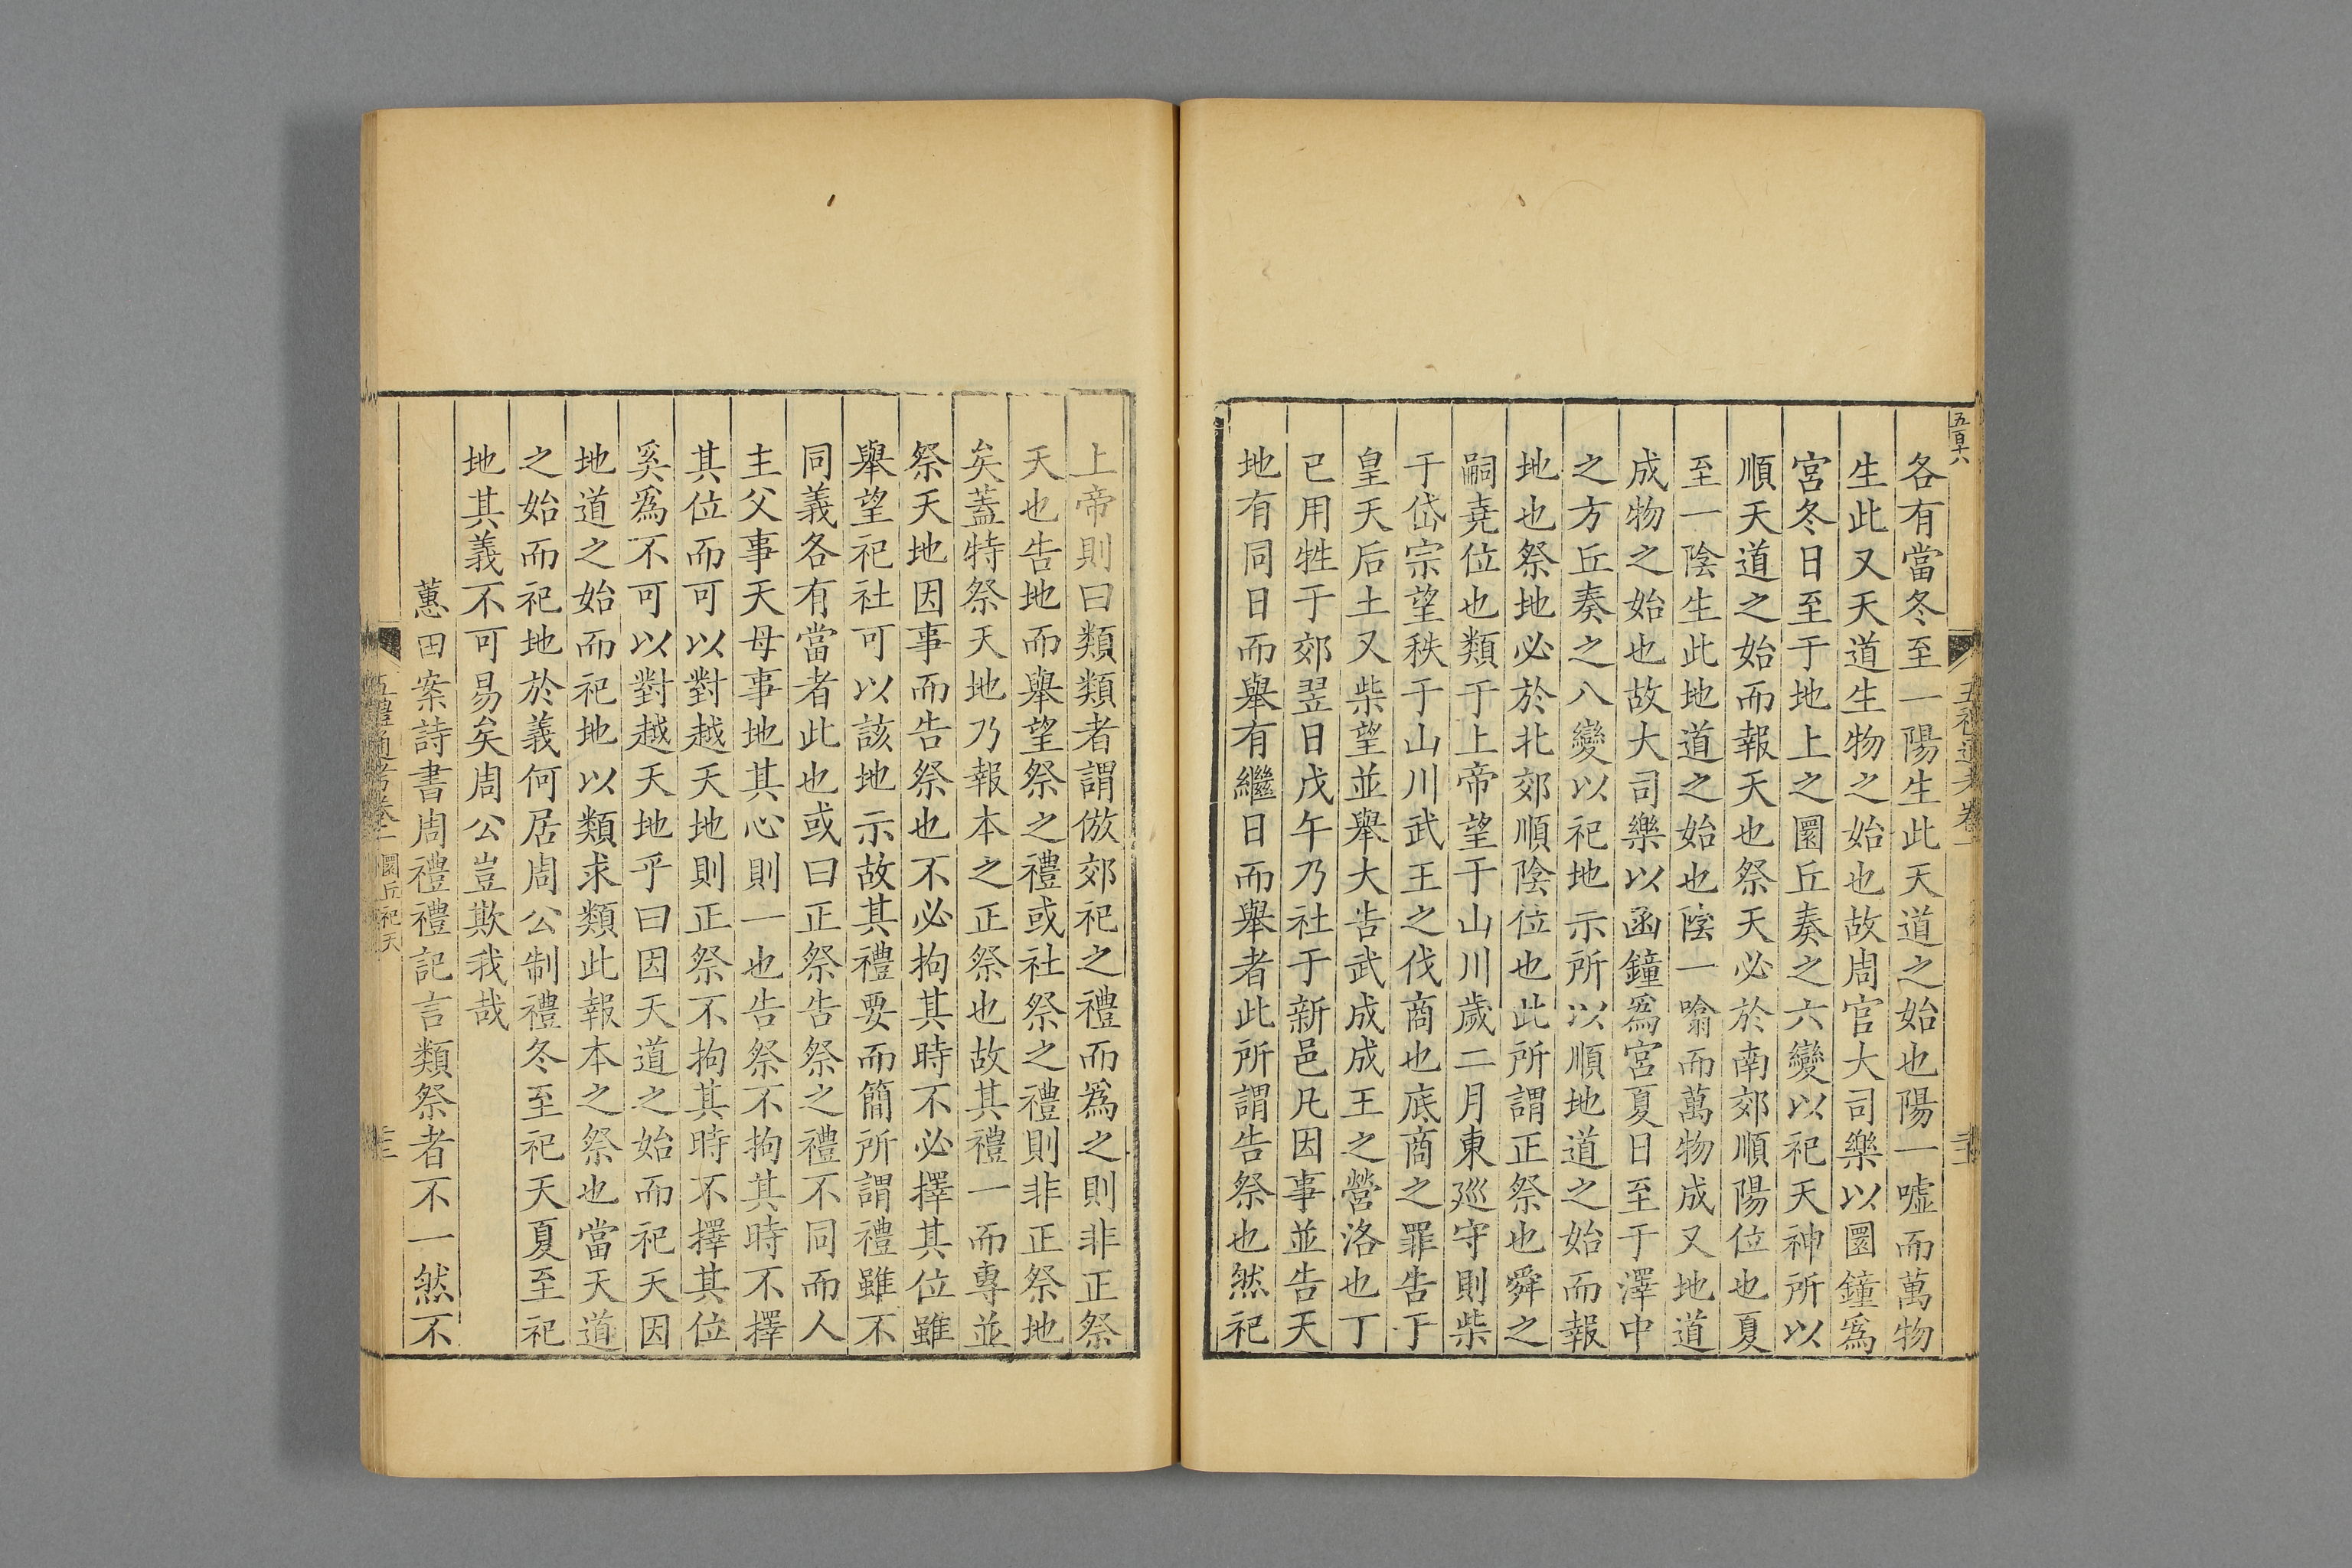 五百十六
各有當冬至一陽生此天道之始也陽一噓而萬物
生此又天道生物之始也故周官大司樂以圜鐘爲
宮冬日至于地上之圜丘奏之六變以祀天神所以
順天道之始而報天也祭天必於南郊順陽位也夏
至一陰生此地道之始也陰一噏而萬物成又地道
成物之始也故大司樂以函鐘爲宮夏日至于澤中
之方丘奏之八變以祀地示所以順地道之始而報
地也祭地必於北郊順陰位也此所謂正祭也舜之
嗣堯位也類于上帝望于山川歲二月東廵守則柴
于岱宗望秩于山川武王之伐商也底商之罪告于
皇天后土又柴望並舉大告武成成王之營洛也丁
已用牲于郊翌日戊午乃社于新邑凡因事並告天
地有同日而舉有繼日而舉者此所謂告祭也然祀
上帝則曰類類者謂倣郊祀之禮而爲之則非正祭
天也告地而舉望祭之禮或社祭之禮則非正祭地
矣蓋特祭天地乃報本之正祭也故其禮一而專並
祭天地因事而告祭也不必拘其時不必擇其位雖
舉望祀社可以該地示故其禮要而簡所謂禮雖不
同義各有當者此也或曰正祭告祭之禮不同而人
主父事天母事地其心則一也告祭不拘其時不擇
其位而可以對越天地則正祭不拘其時不擇其位
奚爲不可以對越天地乎曰因天道之始而祀天因
地道之始而祀地以類求類此報本之祭也當天道
之始而祀地於義何居周公制禮冬至祀天夏至祀
地其義不可易矣周公豈欺我哉
蕙田案詩書周禮禮記言類祭者不一然不
五禮通考卷一 圜丘祀天